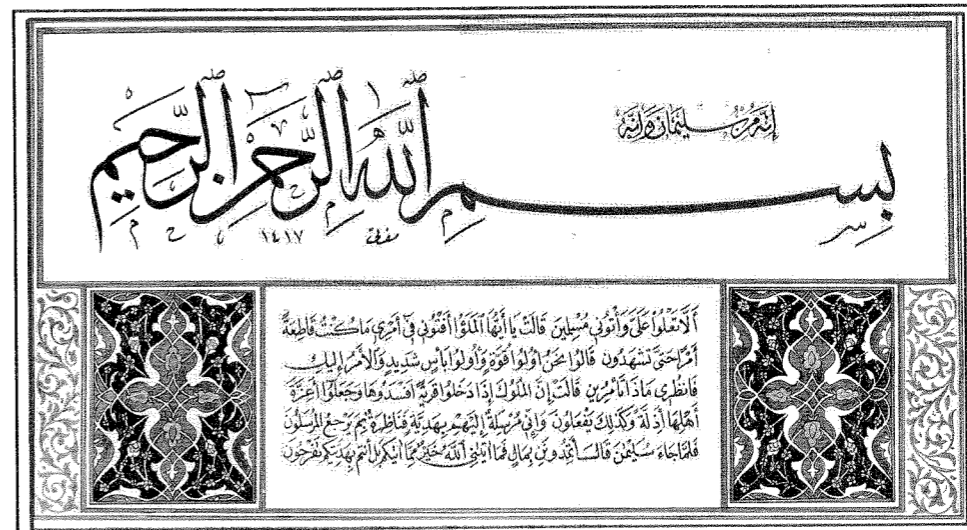 إِنَّهُ مِنْ سُلَيْمَانَ وَإِنَّهُ
بِسْمِ اللَّهِ الرَّحْمٰنِ الرَّحِيمِ
١٤١٧
أَلَّا تَعْلُوا عَلَيَّ وَأْتُونِي مُسْلِمِينَ قَالَتْ يَا أَيُّهَا الْمَلَؤُا أَفْتُونِي فِي أَمْرِي مَا كُنْتُ قَاطِعَةً
أَمْرًا حَتَّى تَشْهَدُونِ قَالُوا نَحْنُ أُولُوا قُوَّةٍ وَأُولُوا بَأْسٍ شَدِيدٍ وَالْأَمْرُ إِلَيْكِ
فَانْظُرِي مَاذَا تَأْمُرِينَ قَالَتْ إِنَّ الْمُلُوكَ إِذَا دَخَلُوا قَرْيَةً أَفْسَدُوهَا وَجَعَلُوا أَعِزَّةَ
أَهْلِهَا أَذِلَّةً وَكَذٰلِكَ يَفْعَلُونَ وَإِنِّي مُرْسِلَةٌ إِلَيْهِمْ بِهَدِيَّةٍ فَنَاظِرَةٌ بِمَ يَرْجِعُ الْمُرْسَلُونَ
فَلَمَّا جَاءَ سُلَيْمٰنَ قَالَ أَتُمِدُّونَنِ بِمَالٍ فَمَا آتٰنِيَ اللَّهُ خَيْرٌ مِمَّا آتٰيكُمْ بَلْ أَنْتُمْ بِهَدِيَّتِكُمْ تَفْرَحُونَ